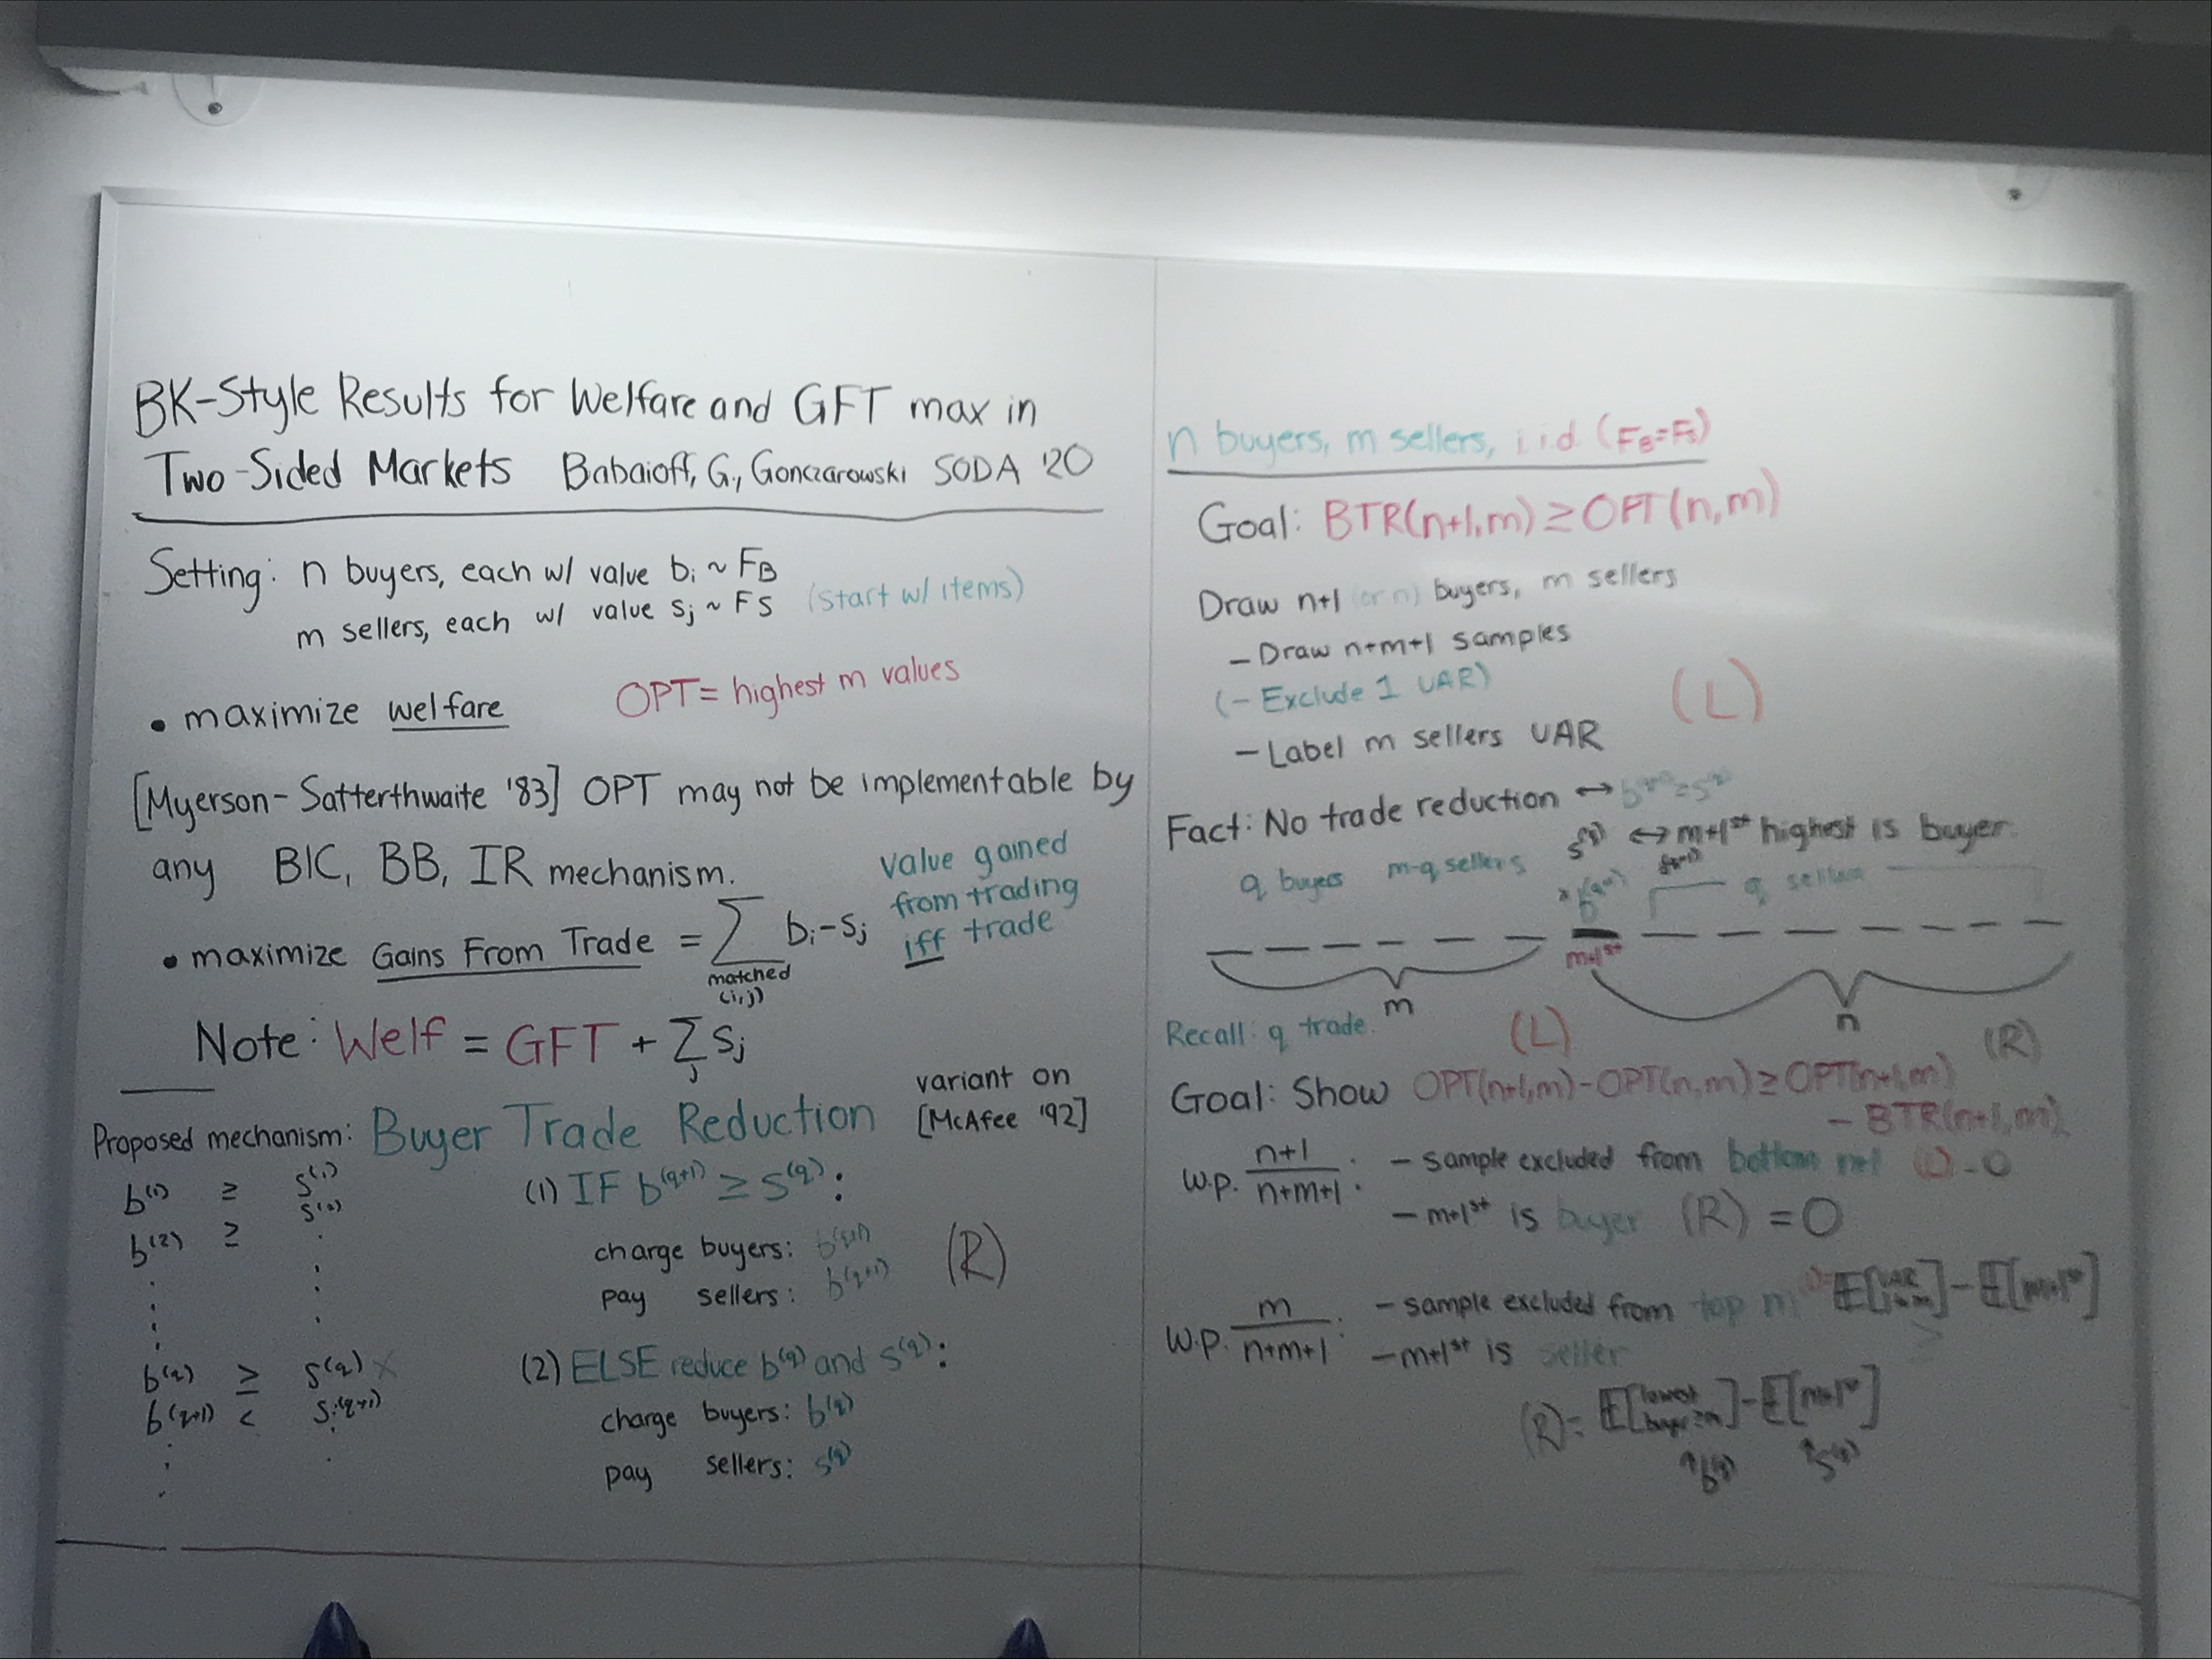 BK-Style Results for Welfare and GFT max in
Two-Sided Markets Babaioff, G., Gonczarowski SODA '20
Setting: n buyers, each w/ value bᵢ ~ F_B
m sellers, each w/ value sⱼ ~ F_S (start w/ items)
• maximize welfare OPT = highest m values
[Myerson-Satterthwaite '83] OPT may not be implementable by
any BIC, BB, IR mechanism.
• maximize Gains From Trade = ∑ bᵢ - sⱼ
matched
(i,j)
value gained
from trading
iff trade
Note: Welf = GFT + ∑ sⱼ
j
Proposed mechanism: Buyer Trade Reduction
variant on
[McAfee '92]
b⁽¹⁾ ≥ s⁽¹⁾
b⁽²⁾ ≥ s⁽²⁾
b^(q) ≥ s^(q) x
b^(q+1) < s^(q+1)
(1) IF b^(q+1) ≥ s^(q):
charge buyers: b^(q+1)
pay sellers: b^(q+1)
(R)
(2) ELSE reduce b^(q) and s^(q):
charge buyers: b^(q)
pay sellers: s^(q)
n buyers, m sellers, i.i.d. (F_B=F_S)
Goal: BTR(n+1,m) ≥ OPT(n,m)
Draw n+1 (or n) buyers, m sellers
- Draw n+m+1 samples
(- Exclude 1 UAR)
(L)
- Label m sellers UAR
Fact: No trade reduction ↔ b^(q+1) ≥ s^(q)
↔ m+1st highest is buyer.
q buyers m-q sellers s^(q)
b^(q+1) q sellers
m+1st
m
n
Recall: q trade.
(L)
(R)
Goal: Show OPT(n+1,m) - OPT(n,m) ≥ OPT(n+1,m)
- BTR(n+1,m)
w.p. n+1/n+m+1: - sample excluded from bottom n+1 (L) = 0
- m+1st is buyer (R) = 0
w.p. m/n+m+1: - sample excluded from top m (L) = E[UAR top m] - E[m+1st]
- m+1st is seller
≥
(R) = E[lowest buyer ≥ m] - E[m+1st]
↑b^(q) ↑s^(q)